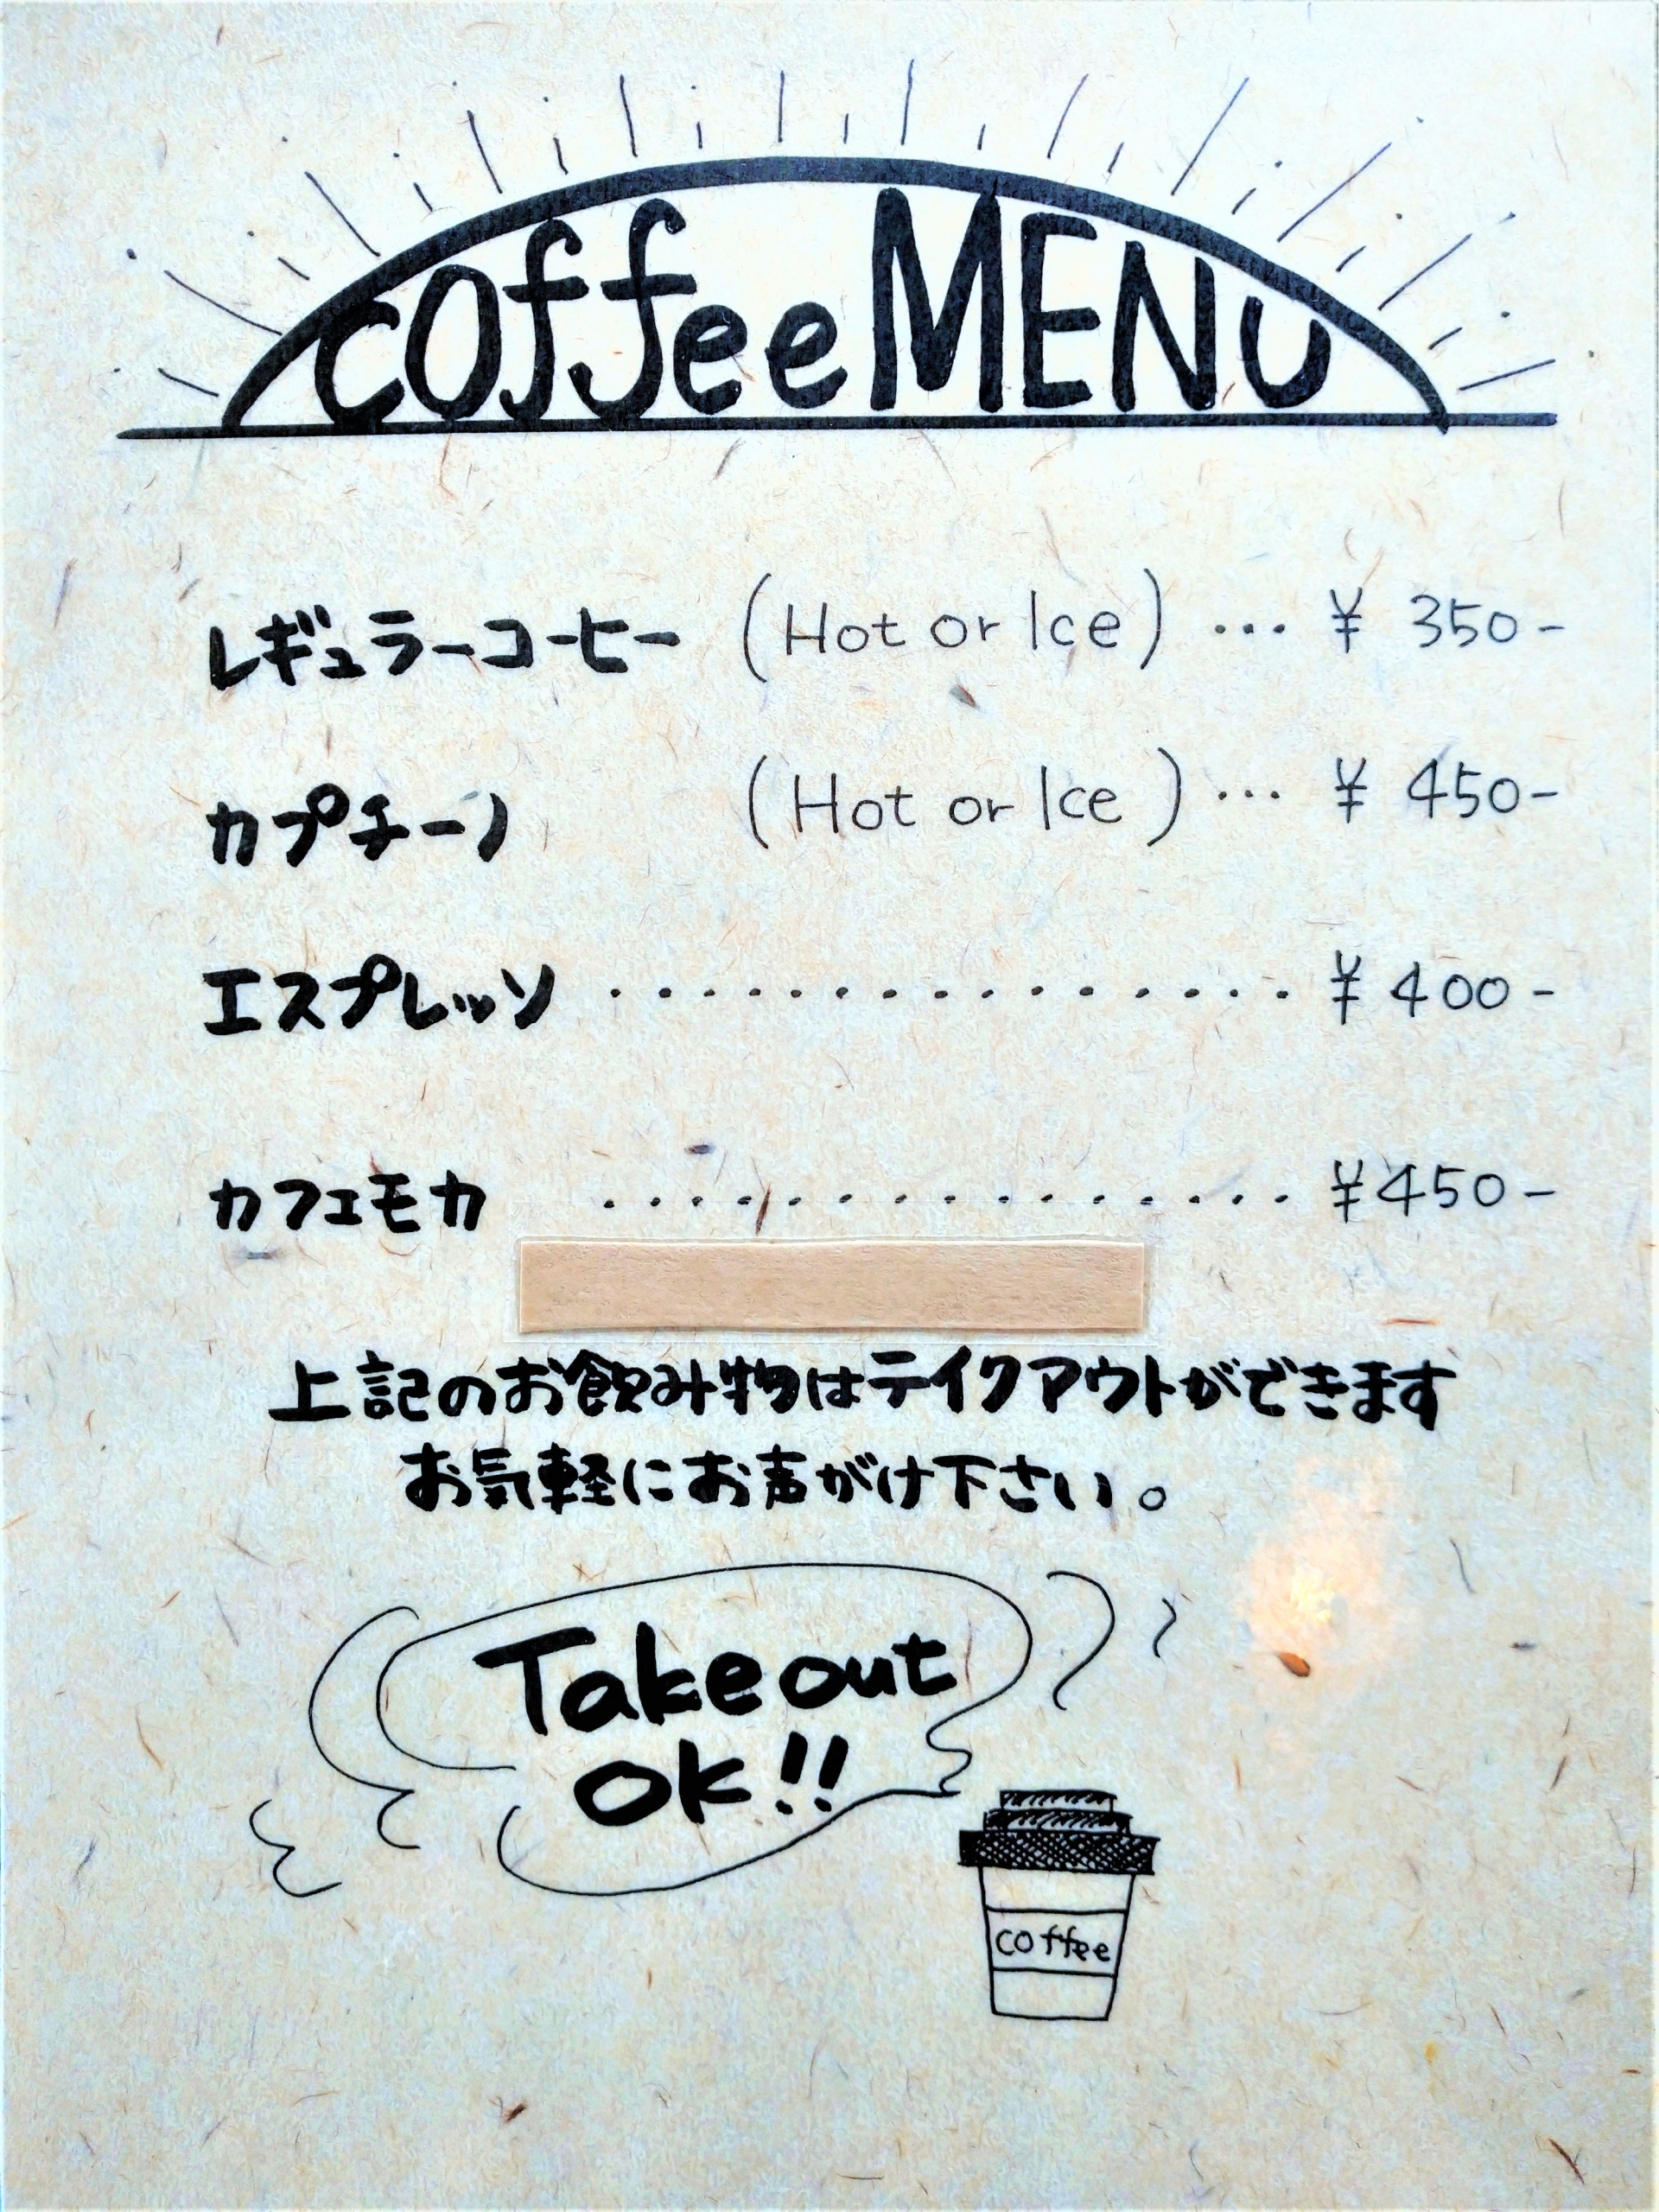 coffee MENU
レギュラーコーヒー (Hot or Ice) ... ¥ 350-
カプチーノ (Hot or Ice) ... ¥ 450-
エスプレッソ ................ ¥ 400-
カフェモカ ................ ¥450-
上記のお飲み物はテイクアウトができます
お気軽にお声がけ下さい。
Take out
OK!!
coffee